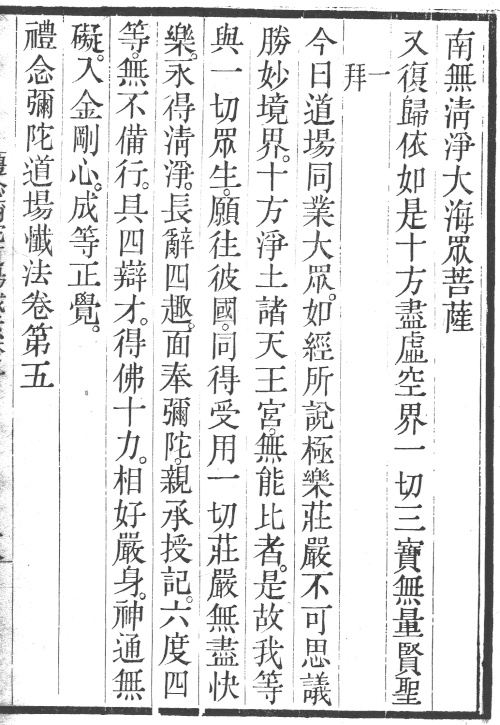 南無清淨大海眾菩薩
又復歸依如是十方盡虛空界一切三寶無量賢聖
一拜
今日道場同業大眾。如經所說極樂莊嚴不可思議
勝妙境界。十方淨土諸天王宮。無能比者。是故我等
與一切眾生。願往彼國。同得受用一切莊嚴無盡快
樂。永得清淨。長辭四趣。面奉彌陀。親承授記。六度四
等。無不備行。具四辯才。得佛十力。相好嚴身。神通無
礙。入金剛心。成等正覺。
禮念彌陀道場懺法卷第五